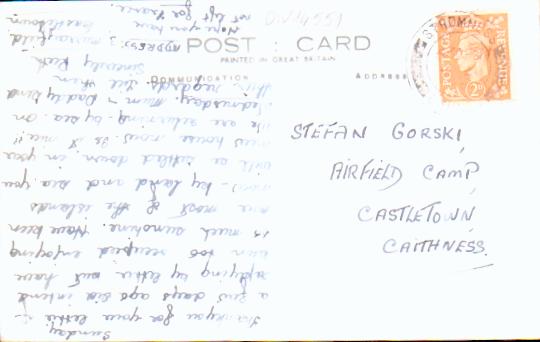 DIV4551
POST : CARD
PRINTED IN GREAT BRITAIN
COMMUNICATION
ADDRESS
STROMN
POSTAGE
REVENUE
2D
STEFAN GORSKI,
AIRFIELD CAMP,
CASTLETOWN,
CAITHNESS.
Sunday.
Thankyou for your letter
a few days ago did intend
replying by letter but have
been too occupied enjoying
so much sunshine. Have been
over most of the islands
by land and sea. you
will be settled down in your
new house now. Is it nice!!
We are returning by sea on
Wednesday. Mum & Daddy send
their regards
Sincerely
ADDRESS: 3
Castletown
Hope you have
not left for France.